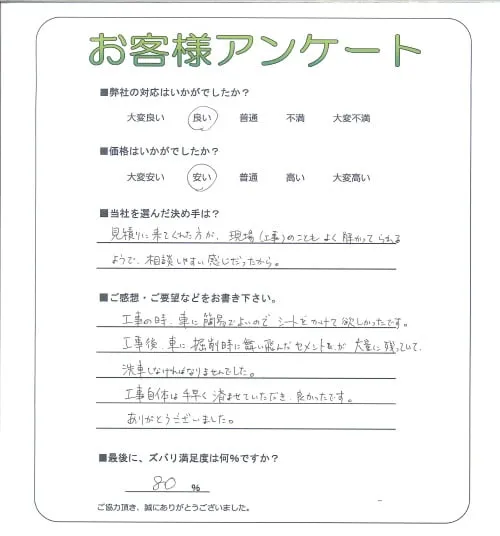 お客様アンケート
■弊社の対応はいかがでしたか？
大変良い 良い 普通 不満 大変不満
■価格はいかがでしたか？
大変安い 安い 普通 高い 大変高い
■当社を選んだ決め手は？
見積りに来てくれた方が、現場(工事)のことも よく 解かって られる
ようで、相談しやすい感じだったから。
■ご感想・ご要望などをお書き下さい。
工事の時、車に簡易でよいので シートをかけて欲しかったです。
工事後、車に 掘削時に舞い飛んだセメントが 大量に残っていて、
洗車しなければなりませんでした。
工事自体は手早く済ませていただき、良かったです。
ありがとうございました。
■最後に、ズバリ満足度は何％ですか？
80 ％
ご協力頂き、誠にありがとうございました。